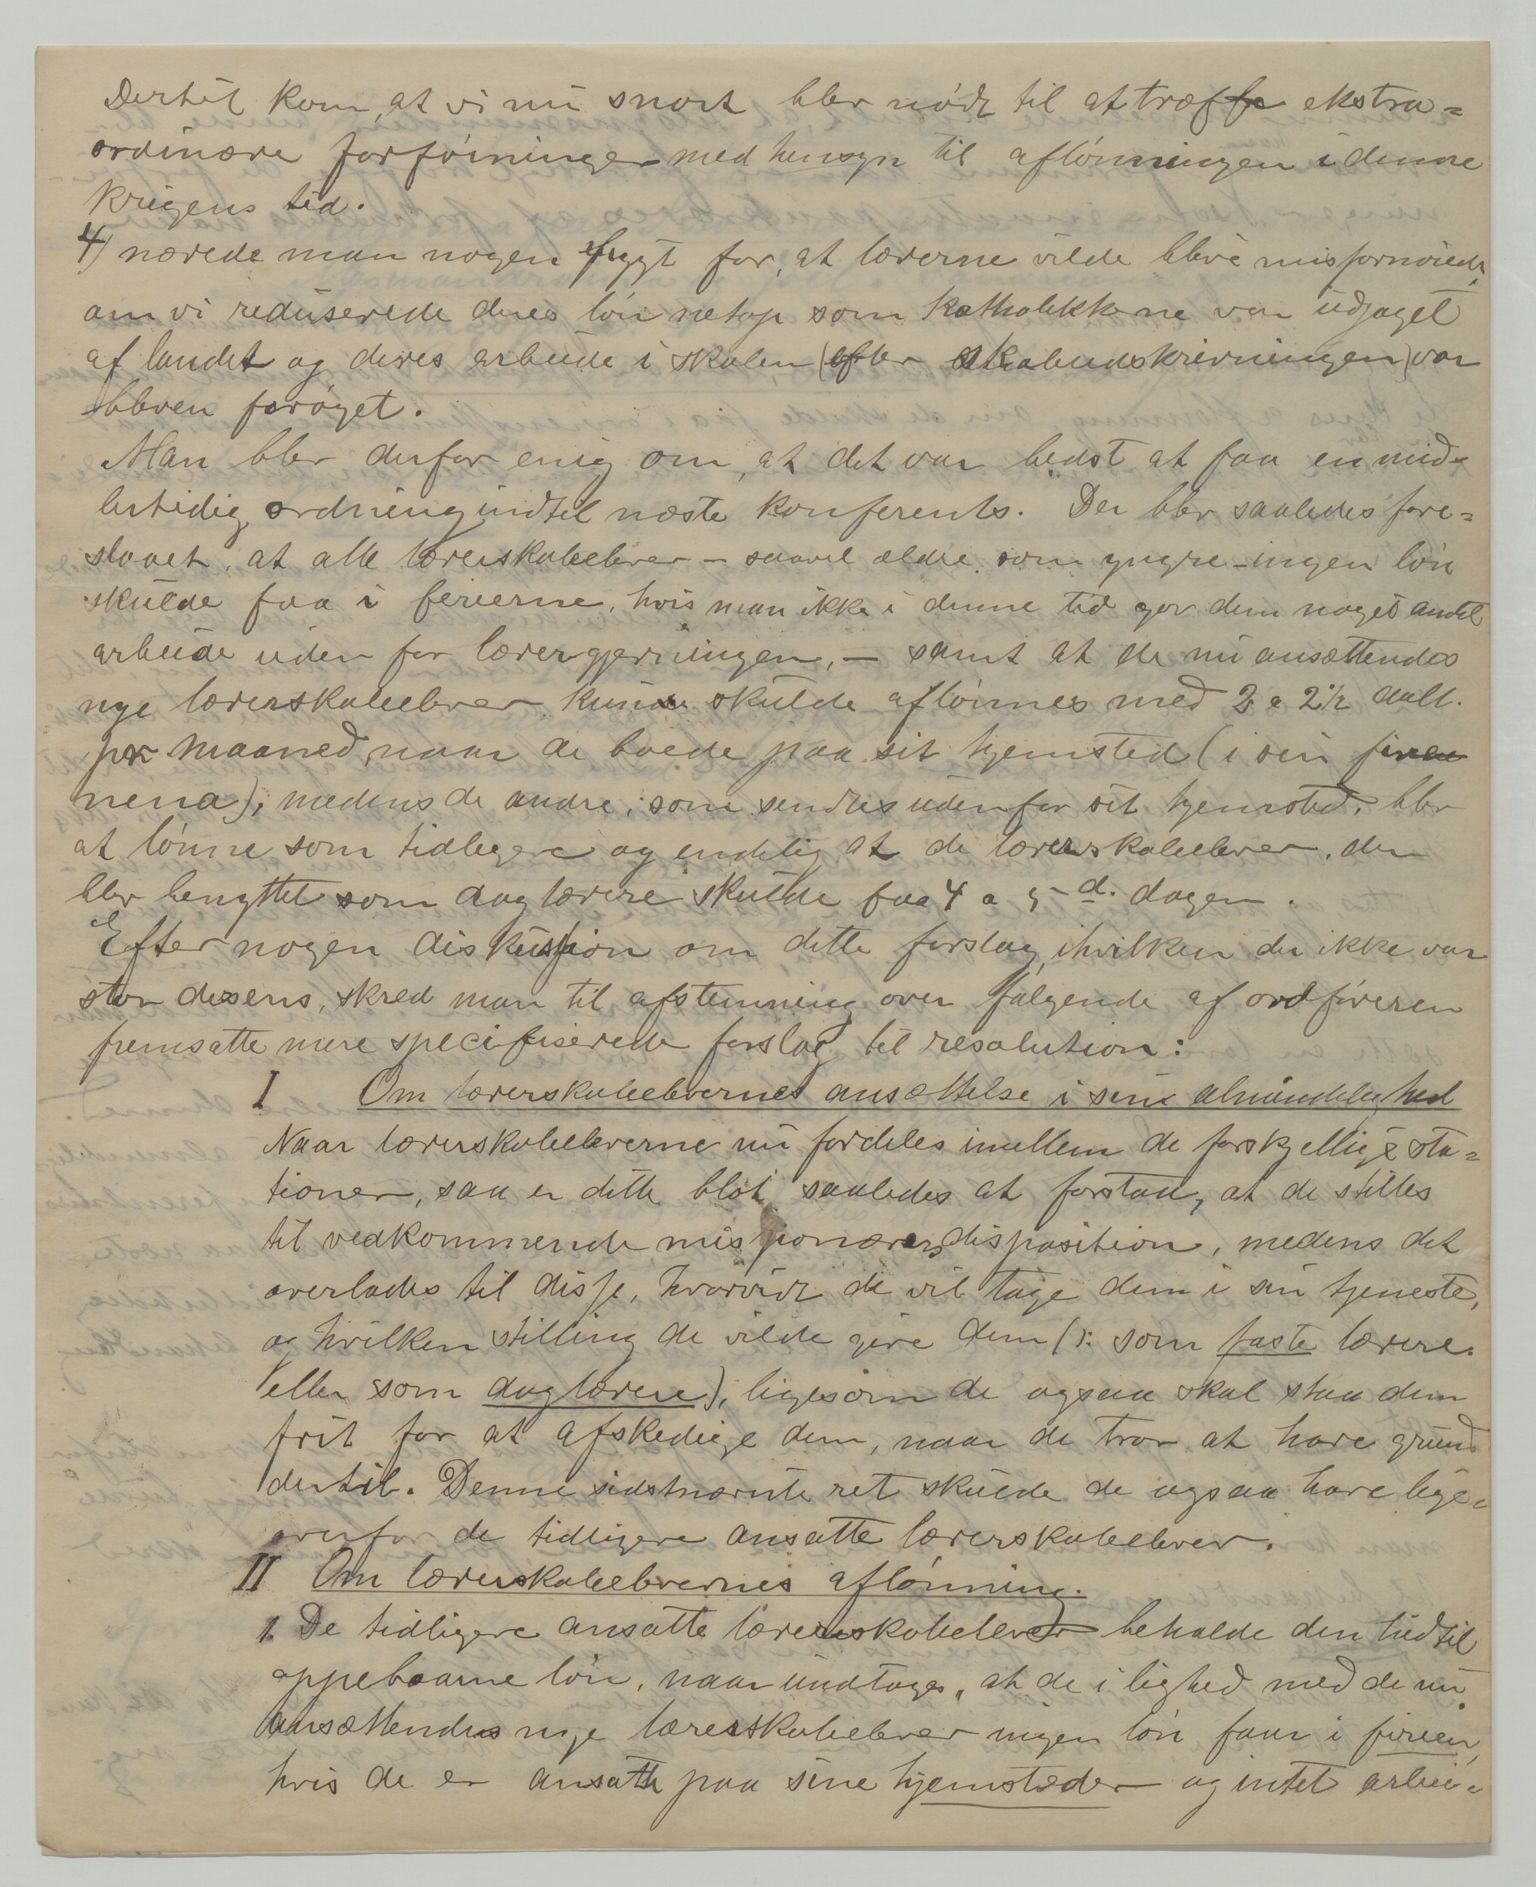 Dertil kom, at vi nu snart blev nødt til at træffe ekstra=
ordinære forføininger med hensyn til aflønningen i denne
krigens tid.
4) nærede man nogen frygt for, at lærerne vilde blive misfornøiede,
om vi reduserede deres løn netop som katholikkene var udjaget
af landet og deres arbeide i skolen (efter skabudskrivningen) var
bleven forøget.
Man blev derfor enig om, at det var bedst at faa en mid=
lertidig ordning indtil næste konferents. Der blev saaledes fore=
slaaet, at alle lærerskoleelever – saavel ældre som yngre – ingen løn
skulde faa i ferierne, hvis man ikke i denne tid gav dem noget andet
arbeide uden for lærergjerningen, – samt at de nu ansættendes
nye lærerskoleelever kun skulde aflønnes med 2 a 2½ doll.
pr maaned, naar de boede paa sit hjemsted (i sin firea
nena), medens de andre, som sendtes udenfor sit hjemsted, blev
at lønne som tidligere og endelig at de lærerskoleelever, der
blev benyttet som daglærere skulde faa 4 a 5 d. dagen.
Efter nogen diskussion om dette forslag, i hvilken der ikke var
stor desens, skred man til afstemning over følgende af ordføreren
fremsatte mere specifiserede forslag til resolution:
I Om lærerskoleelevernes ansættelse i sin almindelighed
Naar lærerskoleeleverne nu fordeles imellem de forskjellige sta=
tioner, saa er dette blot saaledes at forstaa, at de stilles
til vedkommende missionærers disposition, medens det
overlades til disse, hvorvidt de vil tage dem i sin tjeneste,
og hvilken stilling de vilde give dem (ɔ: som faste lærere
eller som daglærere), ligesom de ogsaa skal staa dem
frit for at afskedige dem, naar de tror at have grund
dertil. Denne sidstnævnte ret skulde de ogsaa have lige=
overfor de tidligere ansatte lærerskoleelever.
II Om lærerskoleelevernes aflønning.
1. De tidligere ansatte lærerskoleelever beholde den hidtil
oppebaarne løn, naar undtages, at de i lighed med de nu
ansættendes nye lærerskoleelever ingen løn faar i ferien,
hvis de er ansatte paa sine hjemsteder og intet arbei=